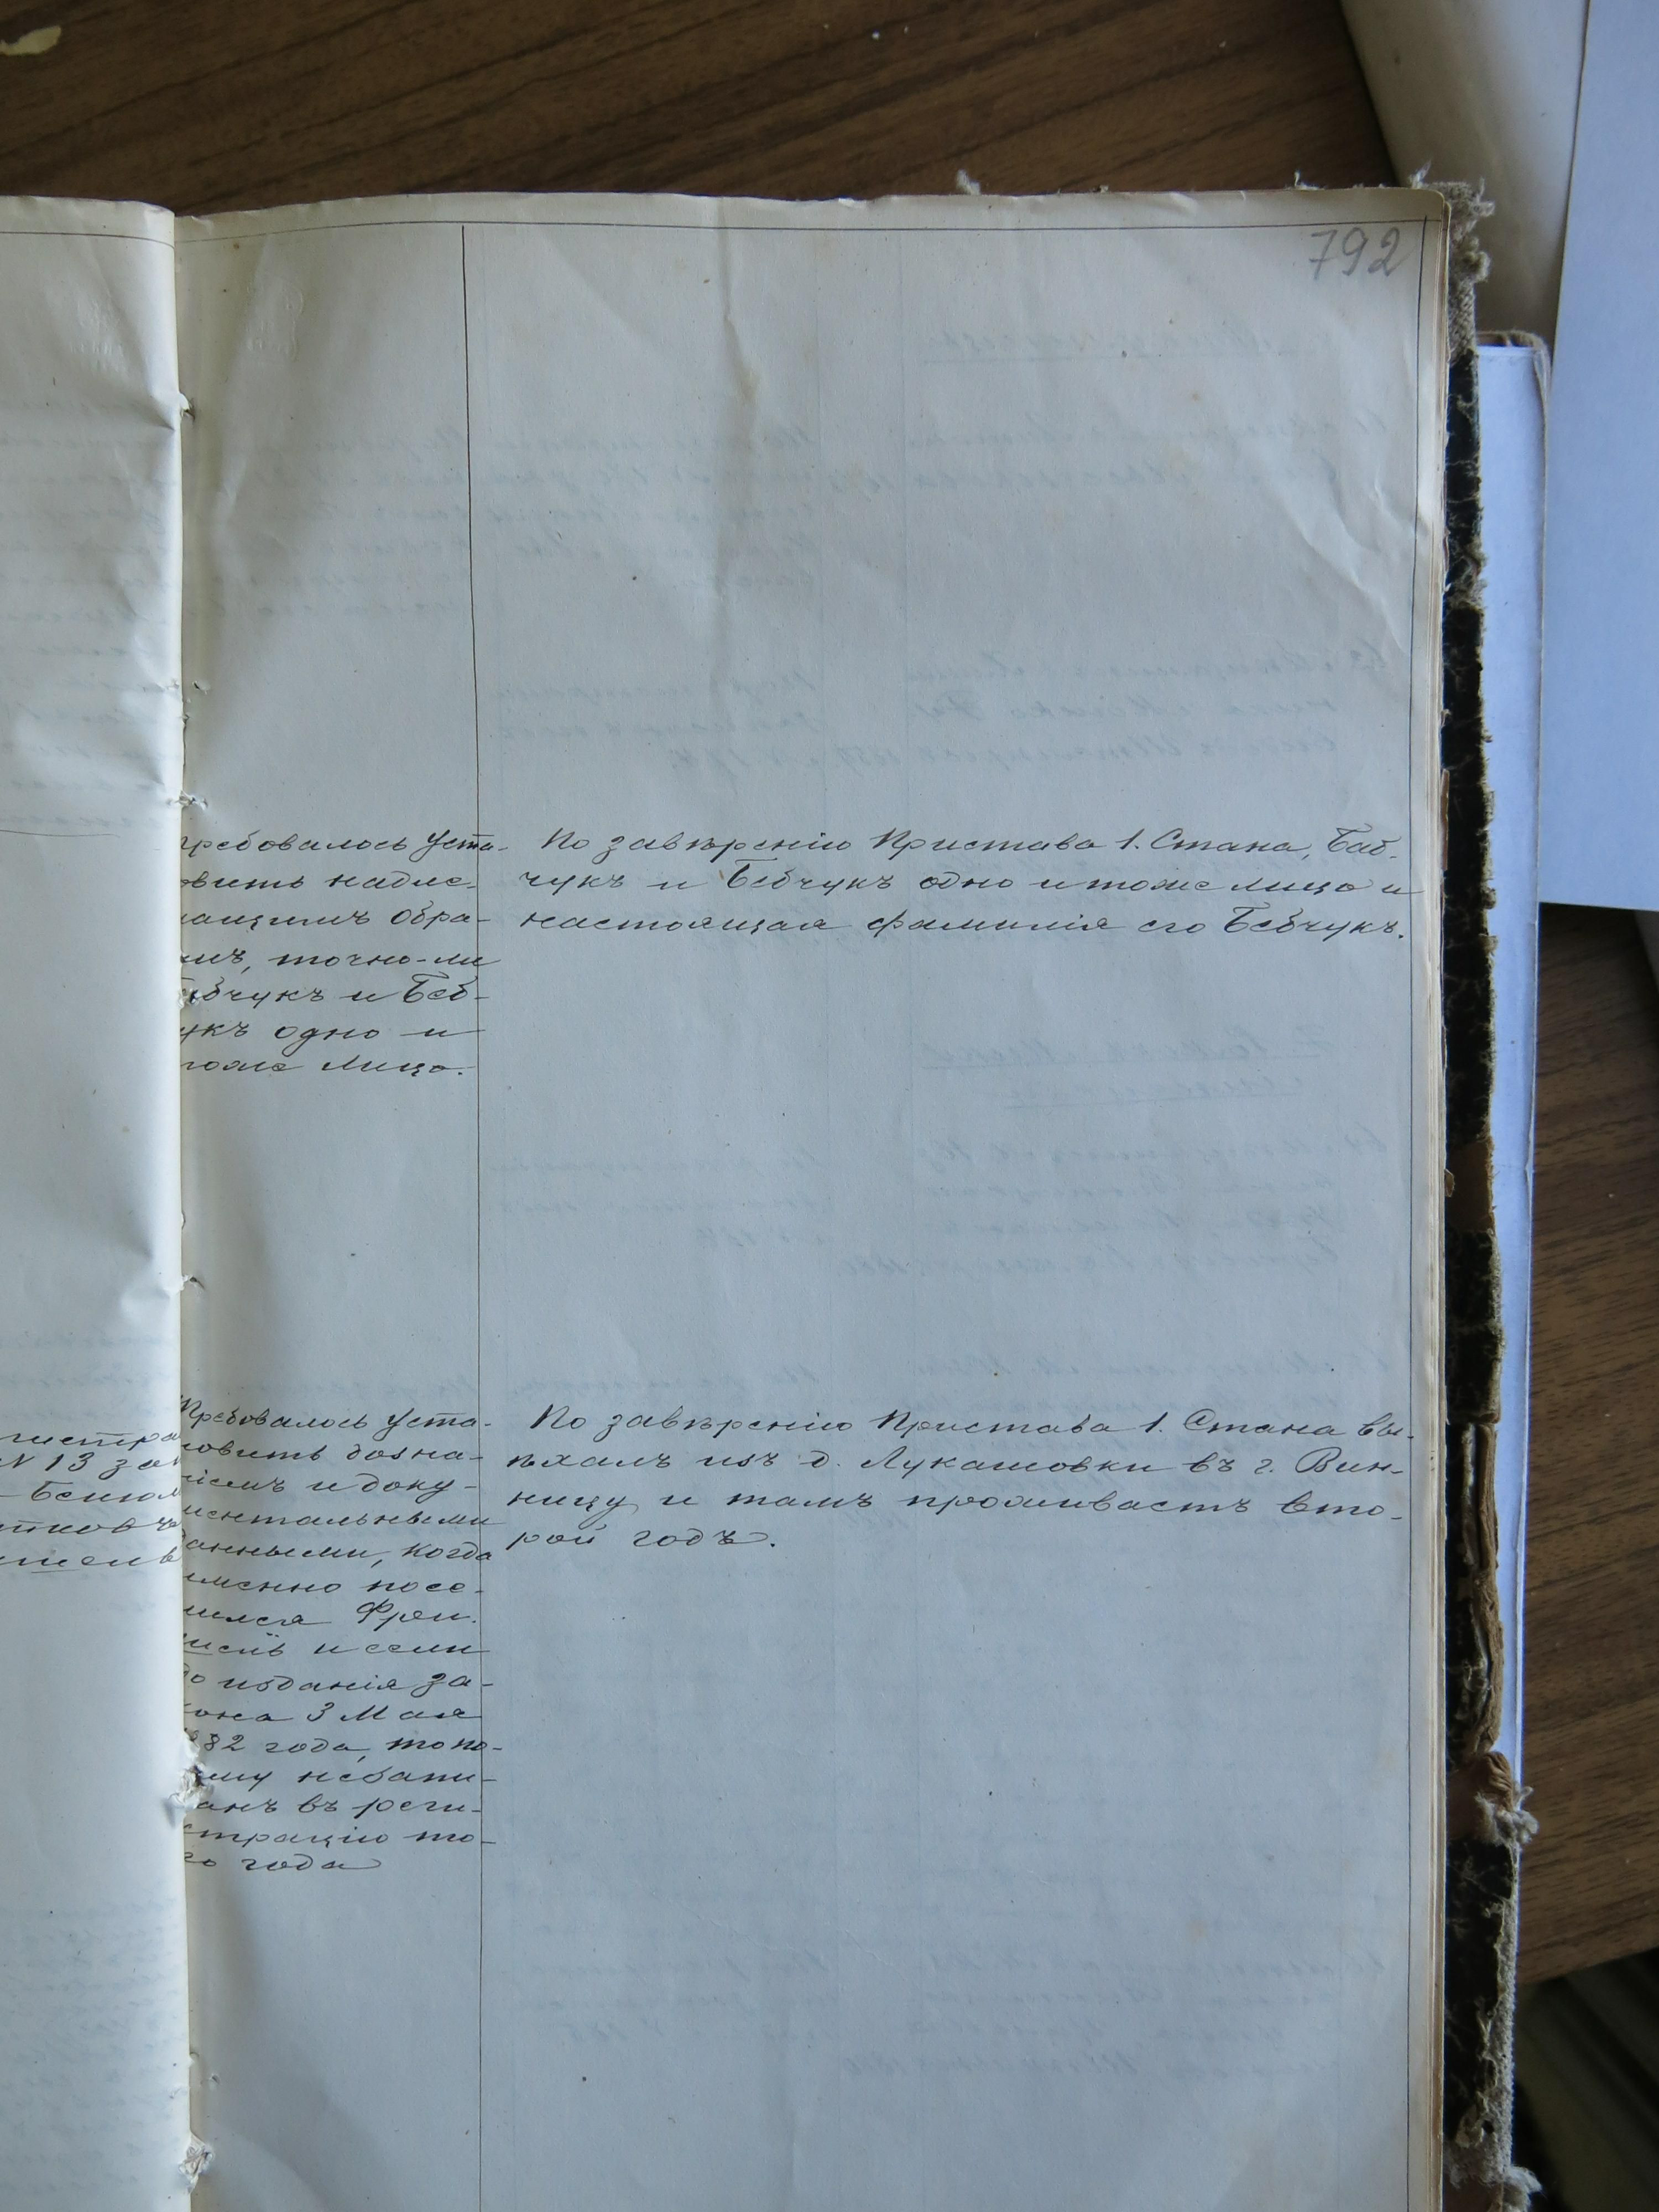 792
требовалось уста-
овить надле-
ащимъ обра-
мъ, точно-ли
бчукъ и Беб-
укъ одно и
тоже лицо.
По завѣренію Пристава 1. Стана, Баб-
чукъ и Бебчукъ одно и тоже лицо и
настоящая фамилія его Бебчукъ.
гистра
N 13 за
Требовалось уста-
новить дозна-
ніемъ и доку-
ментальными
данными, когда
именно посе-
лился Фрей-
и если
до изданія за-
кона 3 Мая
82 года, то по-
ему незапи-
анъ въ реги-
страцію то-
го года
По завѣренію Пристава 1. Стана вы-
ѣхалъ изъ д. Лукашовки въ г. Вин-
ницу и тамъ проживаетъ вто-
рой годъ.